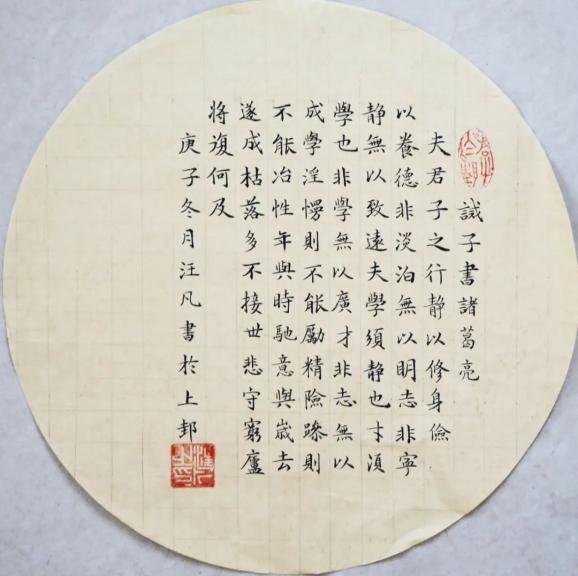 誡子書諸葛亮
夫君子之行静以修身儉
以養德非淡泊無以明志非寧
静無以致遠夫學須静也才須
學也非學無以廣才非志無以
成學淫慢則不能勵精險躁則
不能冶性年與時馳意與歲去
遂成枯落多不接世悲守窮廬
將復何及
庚子冬月汪凡書於上邽